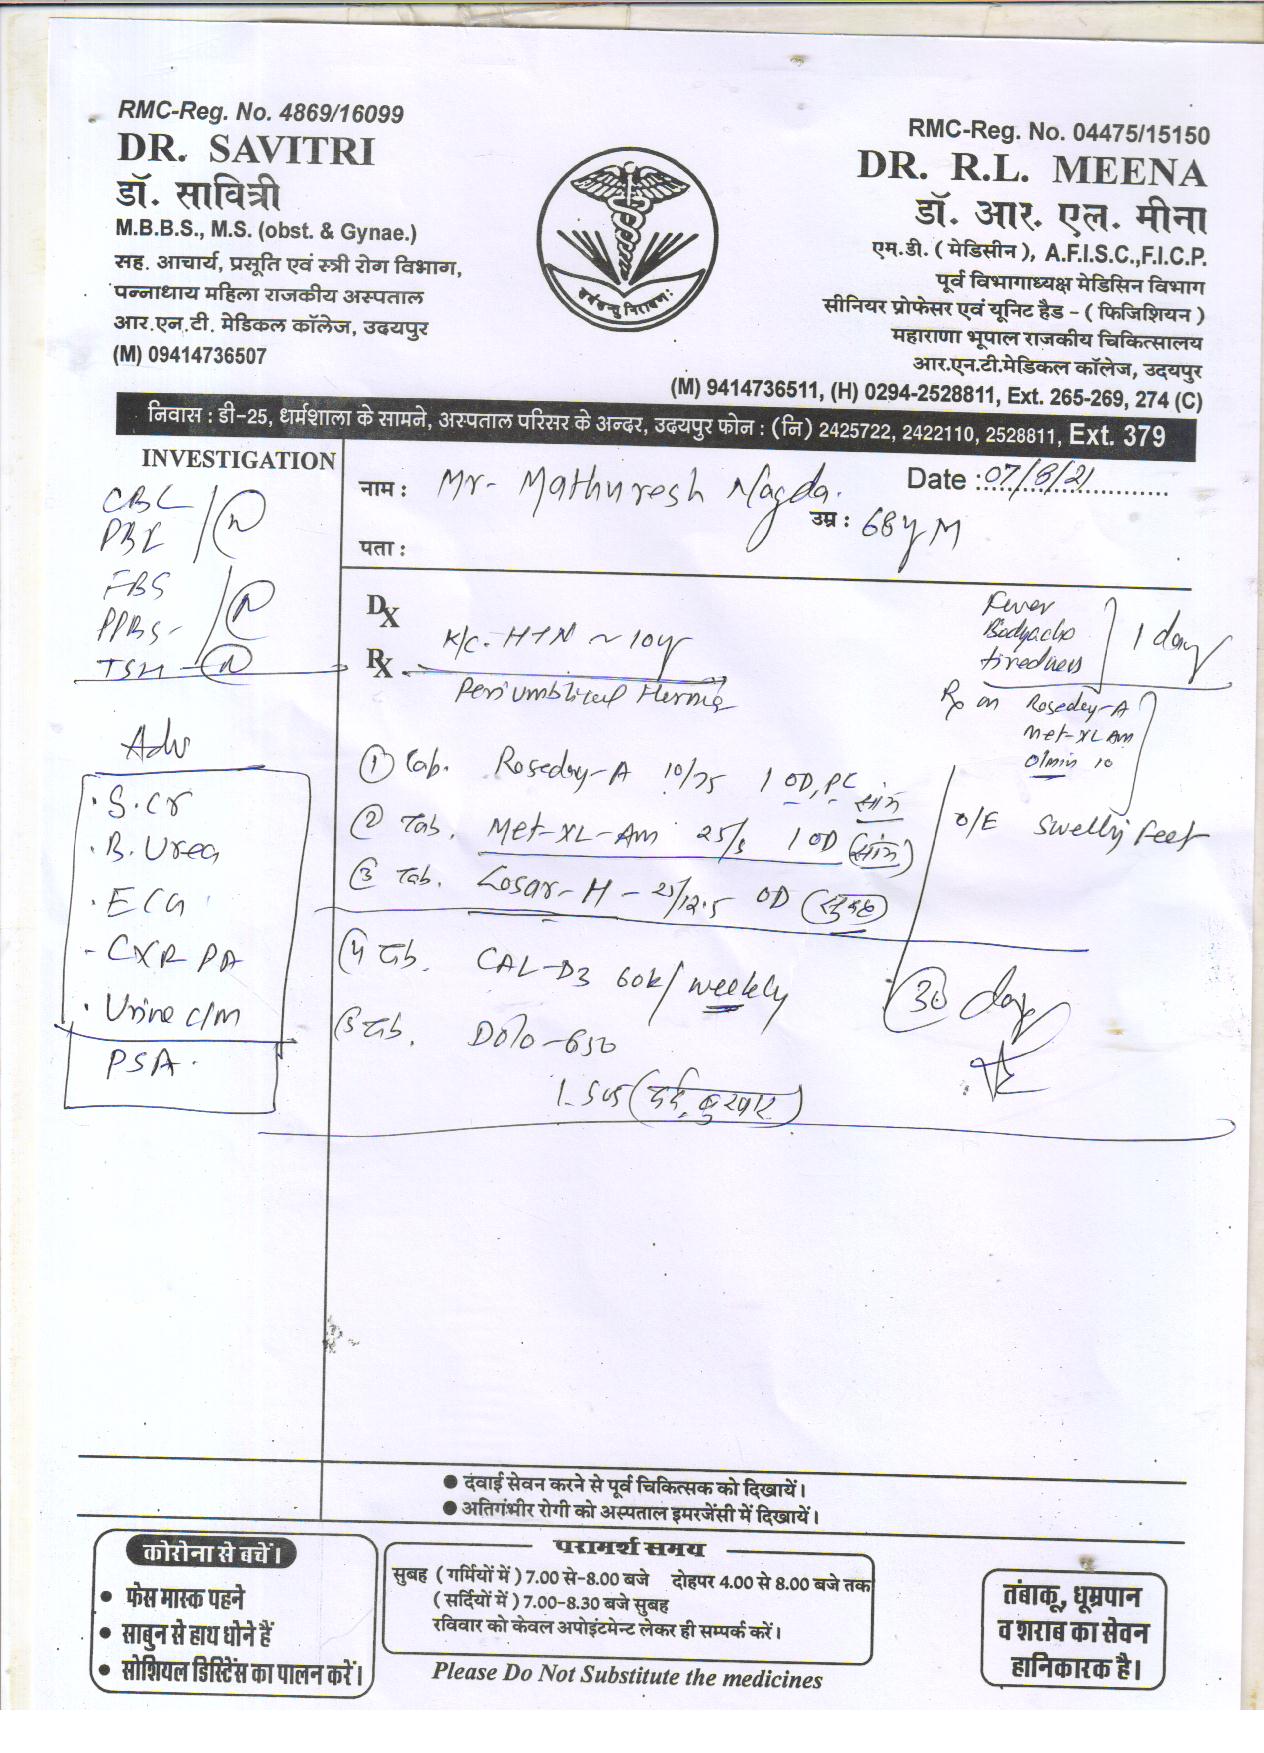 RMC-Reg. No. 4869/16099
DR. SAVITRI
डॉ. सावित्री
M.B.B.S., M.S. (obst. & Gynae.)
सह. आचार्य, प्रसूति एवं स्त्री रोग विभाग,
पन्नाधाय महिला राजकीय अस्पताल
आर.एन.टी. मेडिकल कॉलेज, उदयपुर
(M) 09414736507
RMC-Reg. No. 04475/15150
DR. R.L. MEENA
डॉ. आर. एल. मीना
एम.डी. ( मेडिसीन ), A.F.I.S.C.,F.I.C.P.
पूर्व विभागाध्यक्ष मेडिसिन विभाग
सीनियर प्रोफेसर एवं यूनिट हैड - ( फिजिशियन )
महाराणा भूपाल राजकीय चिकित्सालय
आर.एन.टी.मेडिकल कॉलेज, उदयपुर
(M) 9414736511, (H) 0294-2528811, Ext. 265-269, 274 (C)
निवास : डी-25, धर्मशाला के सामने, अस्पताल परिसर के अन्दर, उदयपुर फोन : (नि) 2425722, 2422110, 2528811, Ext. 379
INVESTIGATION
CBC
FBS
PPBS-
TSH - N
Adv
. S. Cr
. B. Urea
. ECG
- CXR PA
. Urine c/m
PSA.
नाम : Mr. Mathuresh Nagda.
Date : 07/8/21
उम्र : 68y M
पता :
Dx
K/C. HTN ~ 10yr
Rx
Periumblical Hernia
Fever
Bodyache
tiredness
1 day
Rx on Roseday-A
Met-XL Am
Olmin 10
O/E Swelling Feet
① Tab. Roseday-A 10/75 1 OD, PC
② Tab. Met-XL-Am 25/5 1 OD
③ Tab. Losar-H - 25/12.5 OD (सुबह)
④ Tab. CAL-D3 60k/weekly
⑤ Tab. Dolo-650
1 SOS (दर्द, बुखार)
30 days
● दवाई सेवन करने से पूर्व चिकित्सक को दिखायें।
● अतिगंभीर रोगी को अस्पताल इमरजेंसी में दिखायें।
कोरोना से बचें।
● फेस मास्क पहने
● साबुन से हाथ धोने हैं
● सोशियल डिस्टिेंस का पालन करें।
परामर्श समय
सुबह ( गर्मियों में ) 7.00 से-8.00 बजे दोहपर 4.00 से 8.00 बजे तक
( सर्दियों में ) 7.00-8.30 बजे सुबह
रविवार को केवल अपोइंटमेन्ट लेकर ही सम्पर्क करें।
Please Do Not Substitute the medicines
तंबाकू, धूम्रपान
व शराब का सेवन
हानिकारक है।